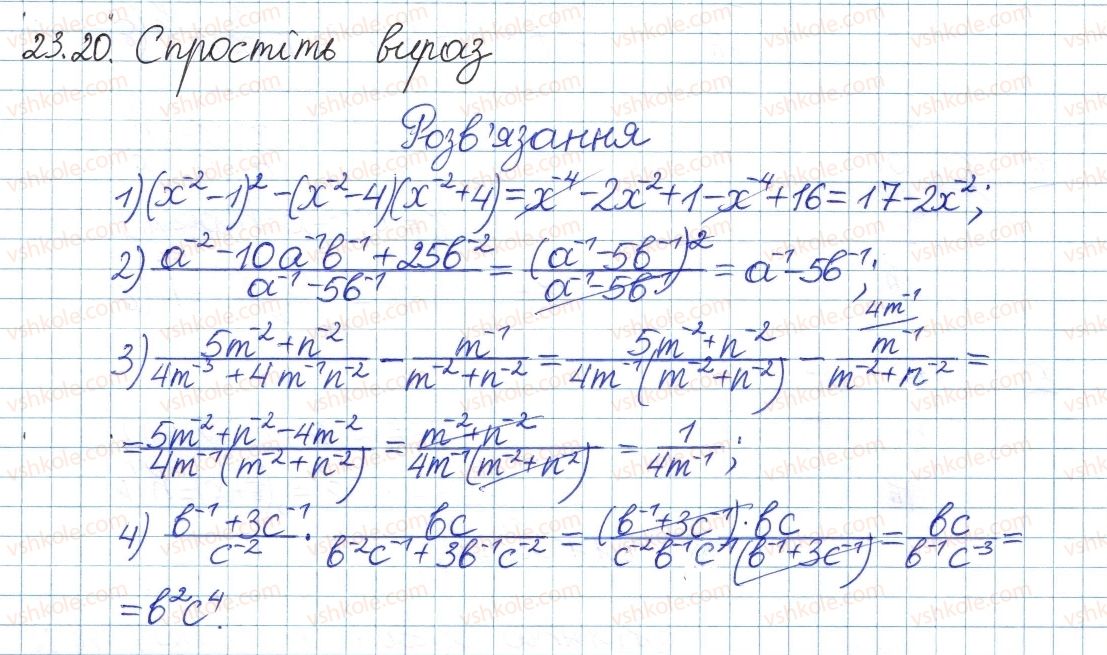 23.20. Спростіть вираз
Розв'язання
1) (x⁻² - 1)² - (x⁻² - 4)(x⁻² + 4) = x⁻⁴ - 2x⁻² + 1 - x⁻⁴ + 16 = 17 - 2x⁻²;
2) (a⁻² - 10a⁻¹b⁻¹ + 25b⁻²)/(a⁻¹ - 5b⁻¹) = (a⁻¹ - 5b⁻¹)²/(a⁻¹ - 5b⁻¹) = a⁻¹ - 5b⁻¹;
3) (5m⁻² + n⁻²)/(4m⁻³ + 4m⁻¹n⁻²) - m⁻¹/(m⁻² + n⁻²) = (5m⁻² + n⁻²)/(4m⁻¹(m⁻² + n⁻²)) - 4m⁻¹/ m⁻¹/(m⁻² + n⁻²) =
= (5m⁻² + n⁻² - 4m⁻²)/(4m⁻¹(m⁻² + n⁻²)) = (m⁻² + n⁻²)/(4m⁻¹(m⁻² + n⁻²)) = 1/(4m⁻¹);
4) (b⁻¹ + 3c⁻¹)/c⁻² · bc/(b⁻²c⁻¹ + 3b⁻¹c⁻²) = ((b⁻¹ + 3c⁻¹) · bc)/(c⁻²b⁻¹c⁻¹(b⁻¹ + 3c⁻¹)) = bc/(b⁻¹c⁻³) =
= b²c⁴.